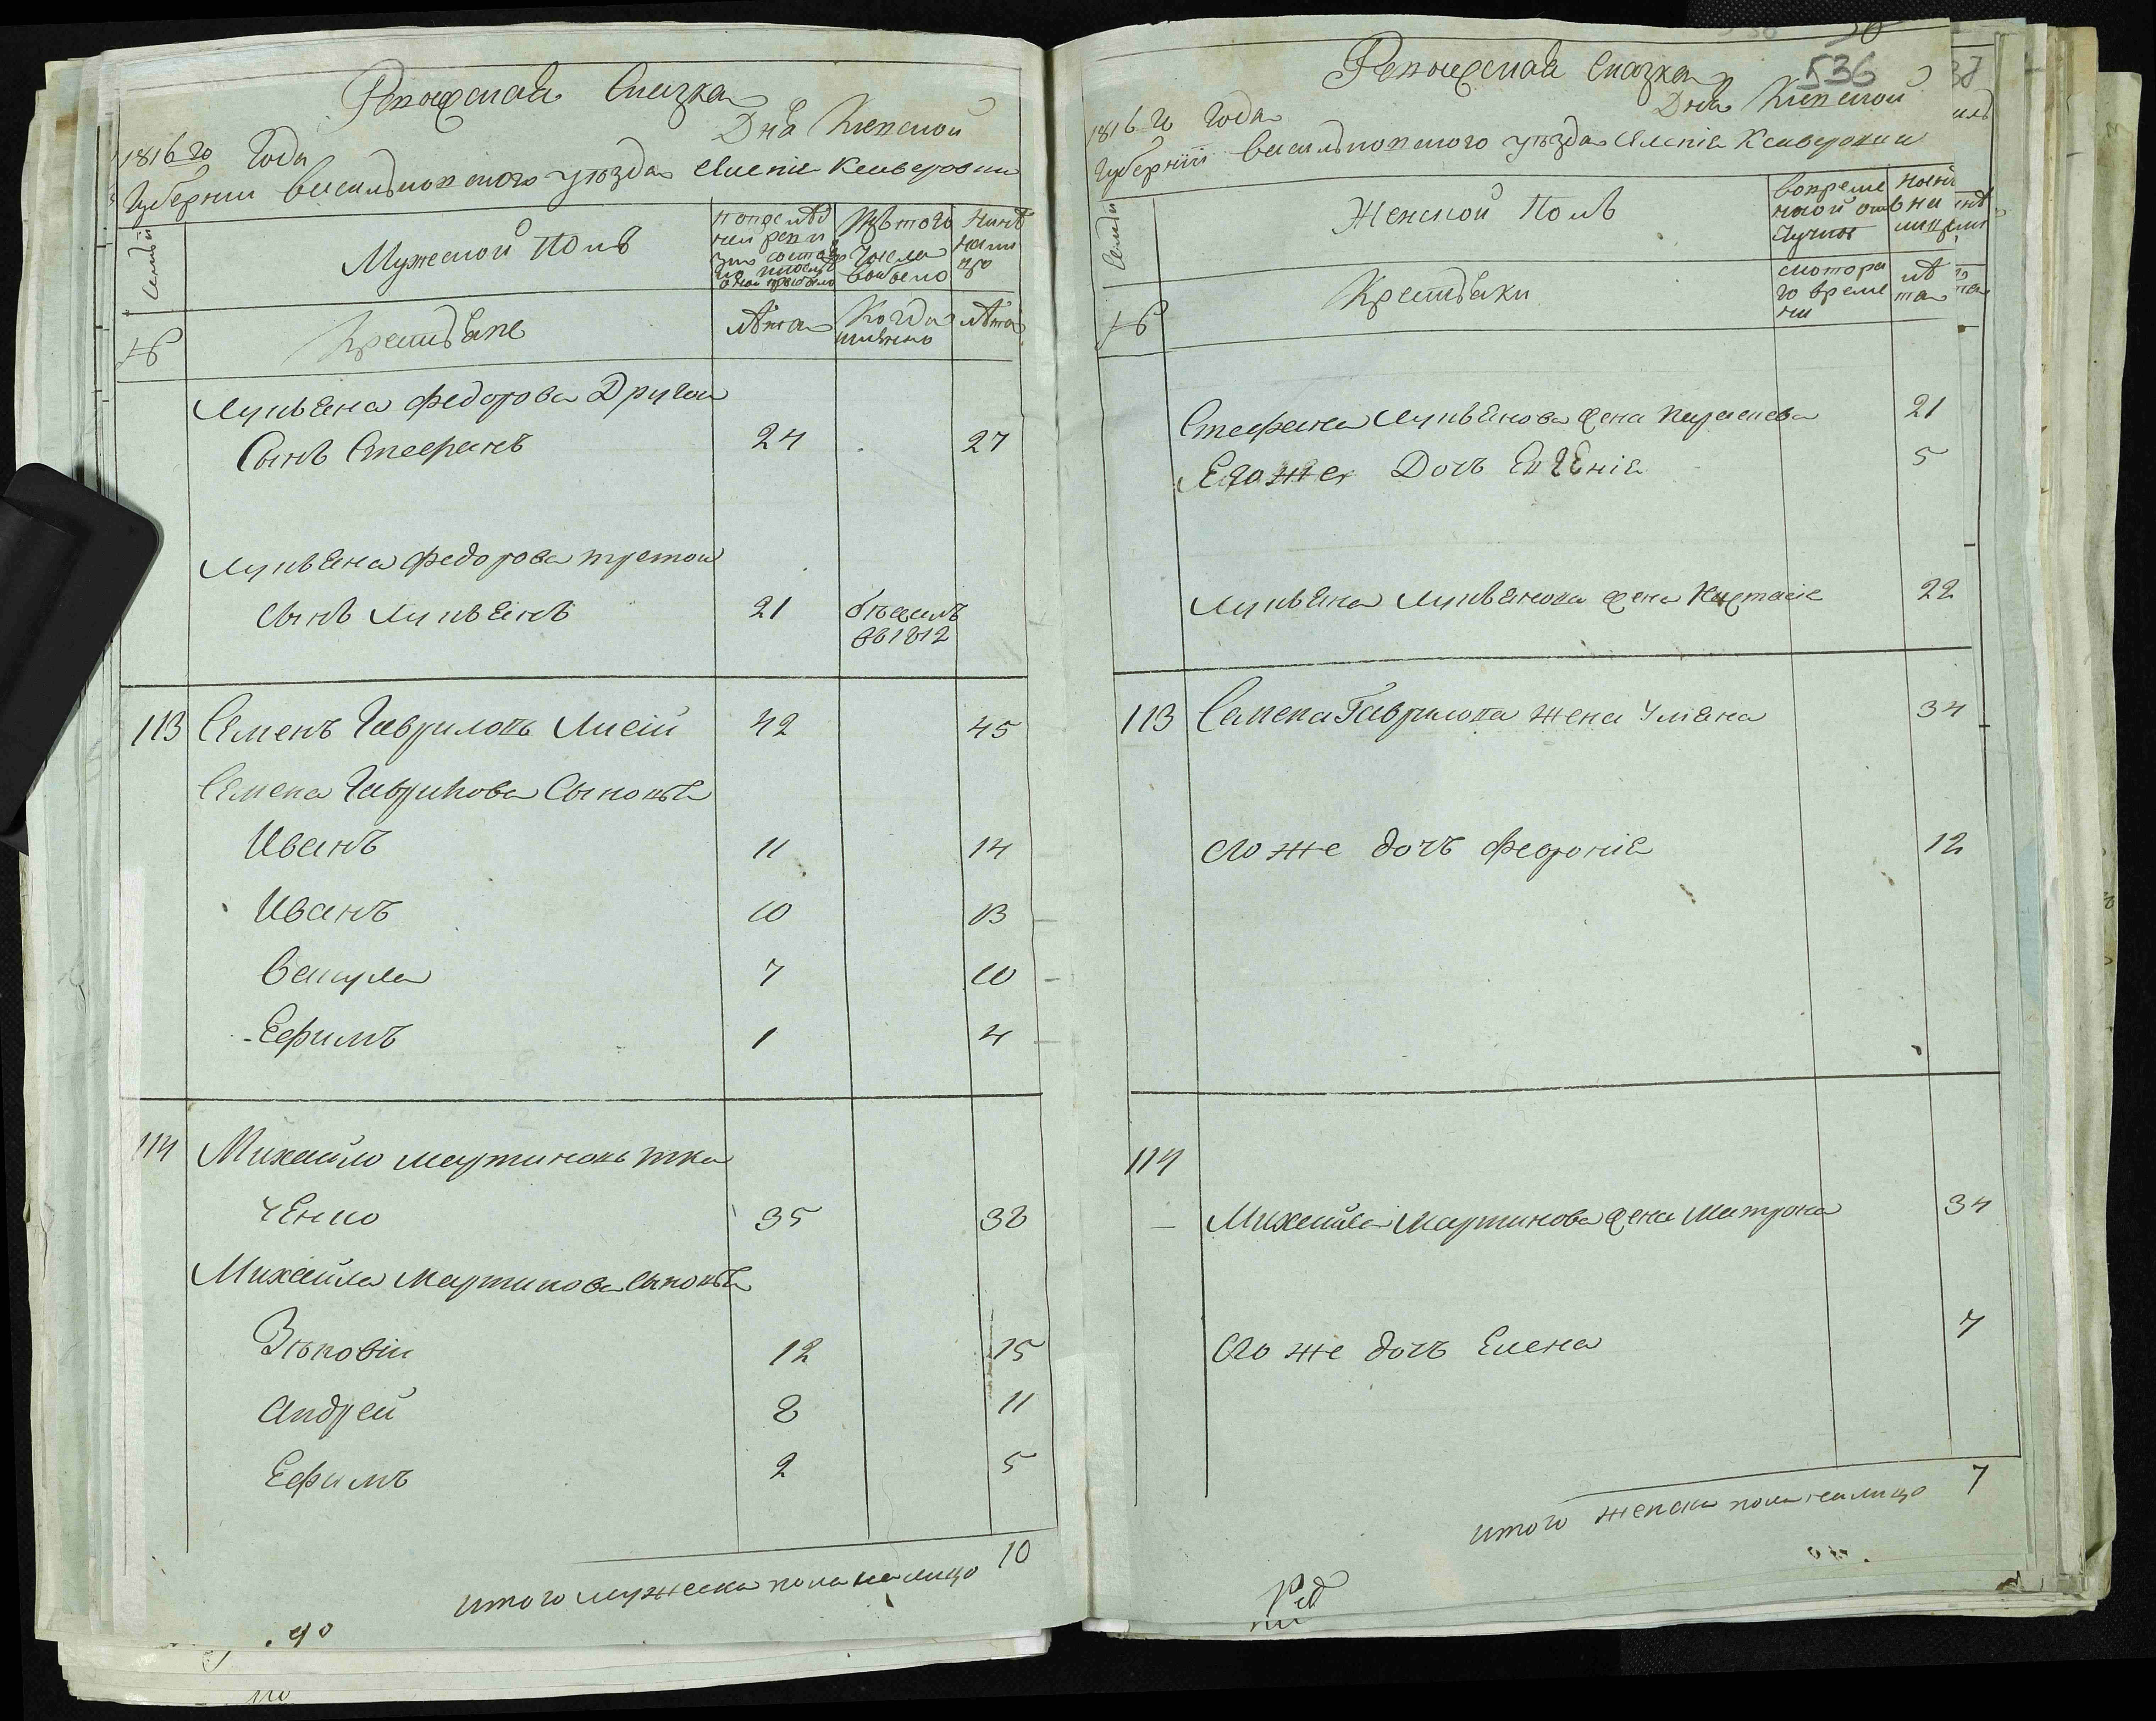 Ревижская Сказка
1816 го Года Дня Киевской
Губернии Васильковского уезда Имения Кошеватой
Семьи
Мужеской полъ
по последней ревизии состояло и после оной прибыло
Изъ того числа выбыло
Ныне налицо
№
Крестьяне
лѣта
Когда именно
лѣта
Лукьяна Федорова Другой
Сынъ Стефанъ 24 27
Лукьяна Федорова третой
Сынъ Лукьянъ 21 бѣжалъ
въ 1812
113 Семенъ Гавриловъ Лисій 42 45
Семена Гаврилова Сыновья
Иванъ 11 14
Иванъ 10 13
Вакула 7 10
Ефимъ 1 4
114 Михайло Мартиновъ Тка
ченко 35 38
Михайла Мартинова Сыновья
Зѣновій 12 15
Андрей 8 11
Ефимъ 2 5
итого мужеска пола налицо 10
536
Ревижская Сказка
1816 го Года Дня Киевской
Губернїи Васильковского уѣзда
Семьи
Женской Полъ
во временной отлучке
Ныне налицо
№
Крестьянки
с которого времени
лѣта
Стефана Лукьянова жена Параскева 21
Его же Дочь Евгенія 5
Лукьяна Лукьянова жена Настасія 22
113 Семена Гаврилова жена Уляна 34
его же дочъ Февронія 12
114
Михайла Мартинова жена Матрона 34
его же дочъ Елена 7
итого женска пола налицо 7